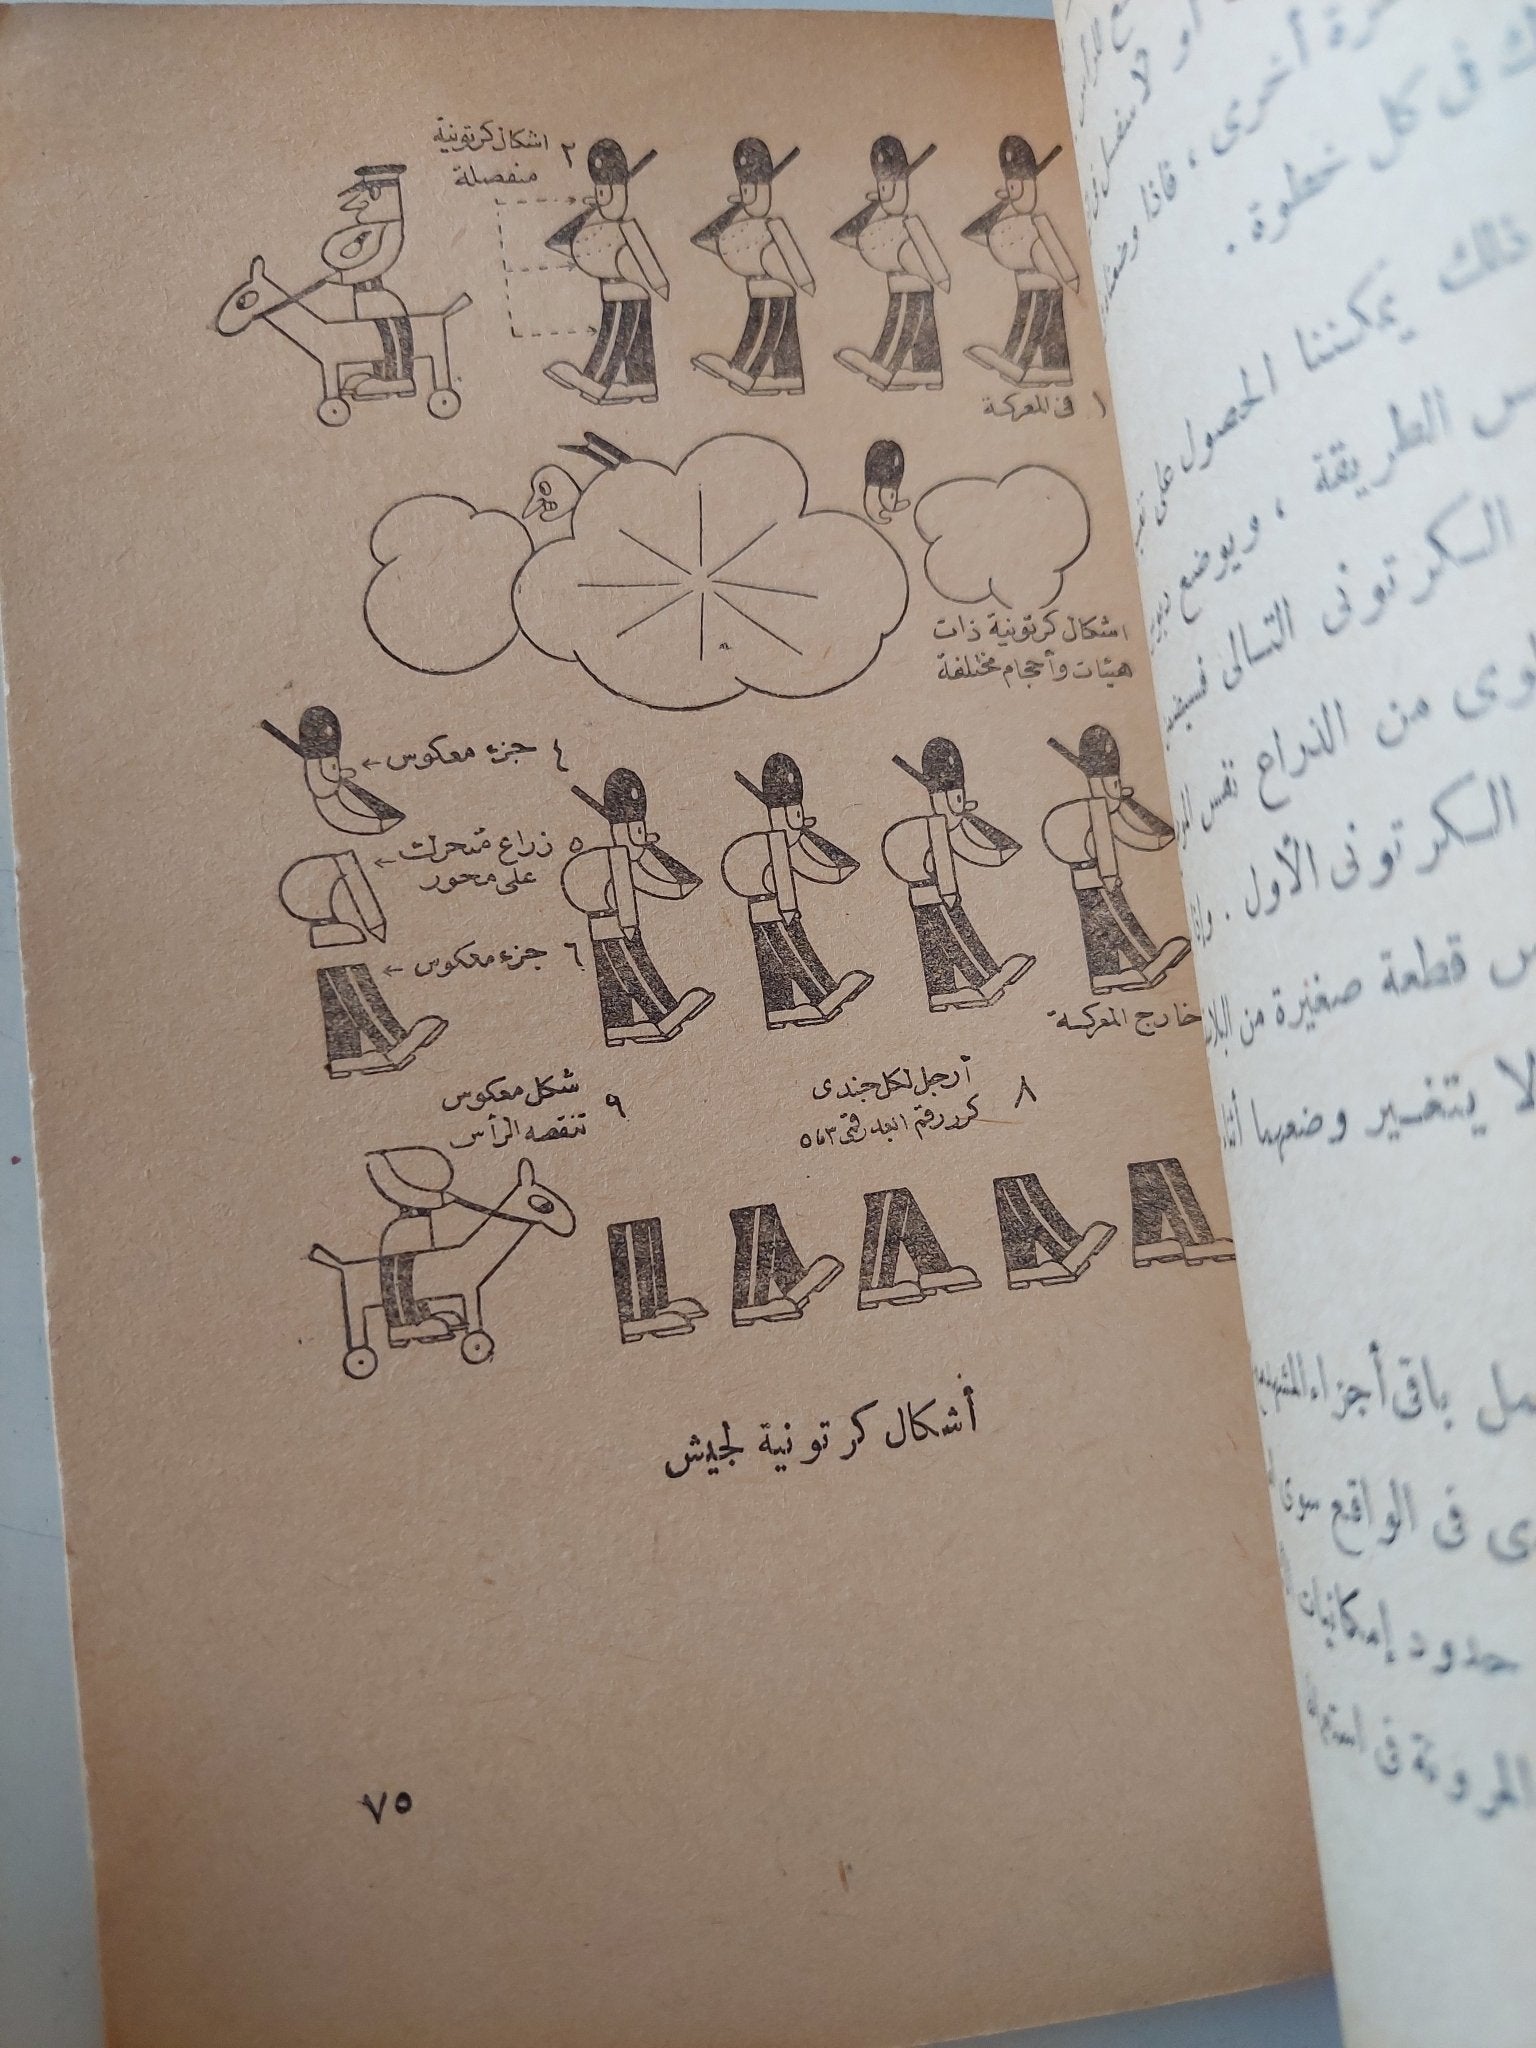 ٢ اشكال كرتونية
منفصلة
١ فى المعركة
اشكال كرتونية ذات
هيئات وأحجام مختلفة
٤ جزء معكوس
٥ زراع متحرك
على محور
٦ جزء معكوس
خارج المعركة
٨ أرجل لكل جندى
كرر رقم
٩ شكل معكوس
تنقصه الرأس
أشكال كرتونية لجيش
٧٥
أخرى ، فاذا
فى كل خطوة .
ذلك يمكننا الحصول على
الطريقة ، ويوضع
الكرتونى التالى
من الذراع نفس
الكرتونى الأول .
قطعة صغيرة من
لا يتغير وضعها
باقى أجزاء
فى الواقع سوى
حدود إمكانيات
المرونة فى